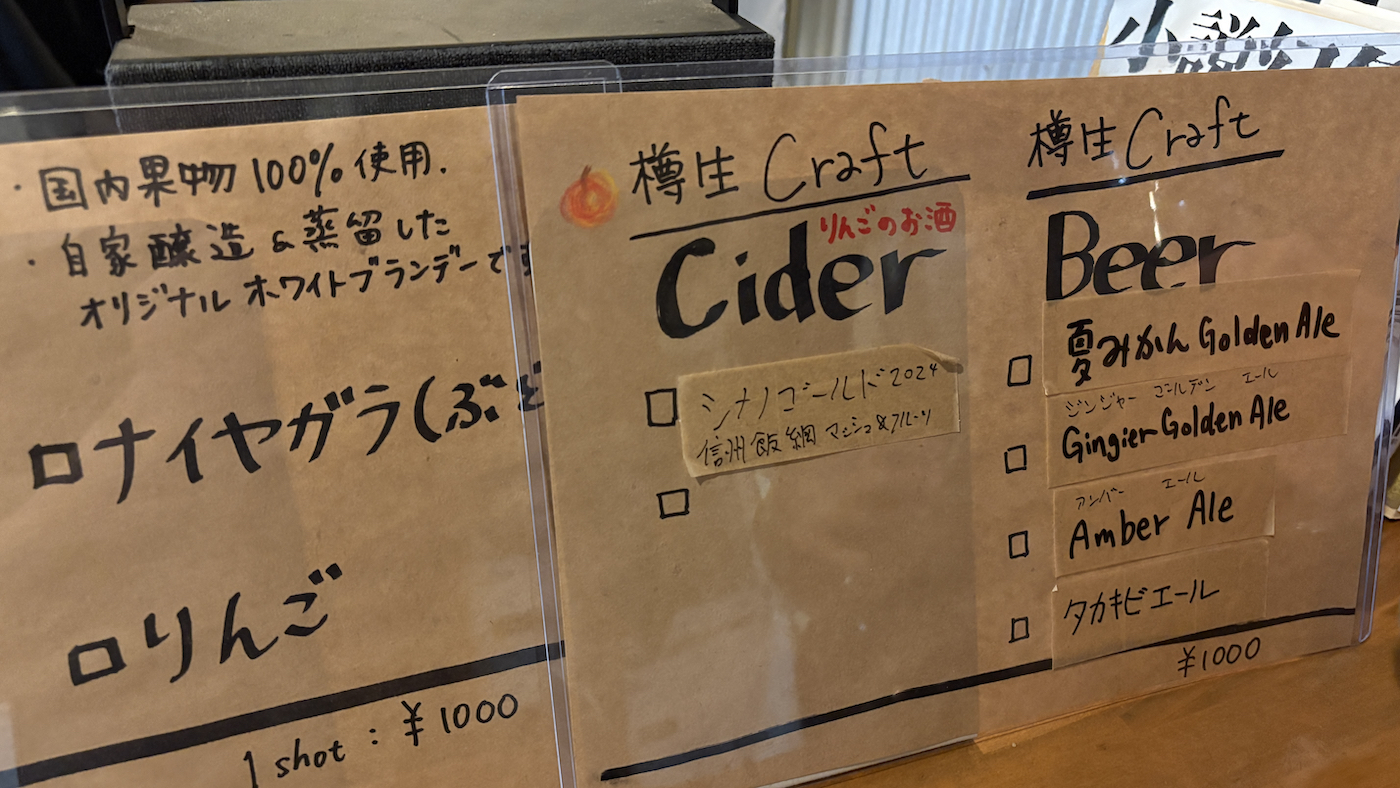 ・国内果物100%使用.
・自家醸造&蒸留した
オリジナルホワイトブランデーです
□ナイヤガラ(ぶど
□りんご
1 shot : ¥1000
樽生 Craft
りんごのお酒
Cider
□ シナノゴールド2024
信州飯綱 マッシュ&フルーツ
□
樽生 Craft
Beer
□ 夏みかん Golden Ale
ジンジャー ゴールデン エール
□ Gingier Golden Ale
アンバー エール
□ Amber Ale
□ タカキビエール
¥1000